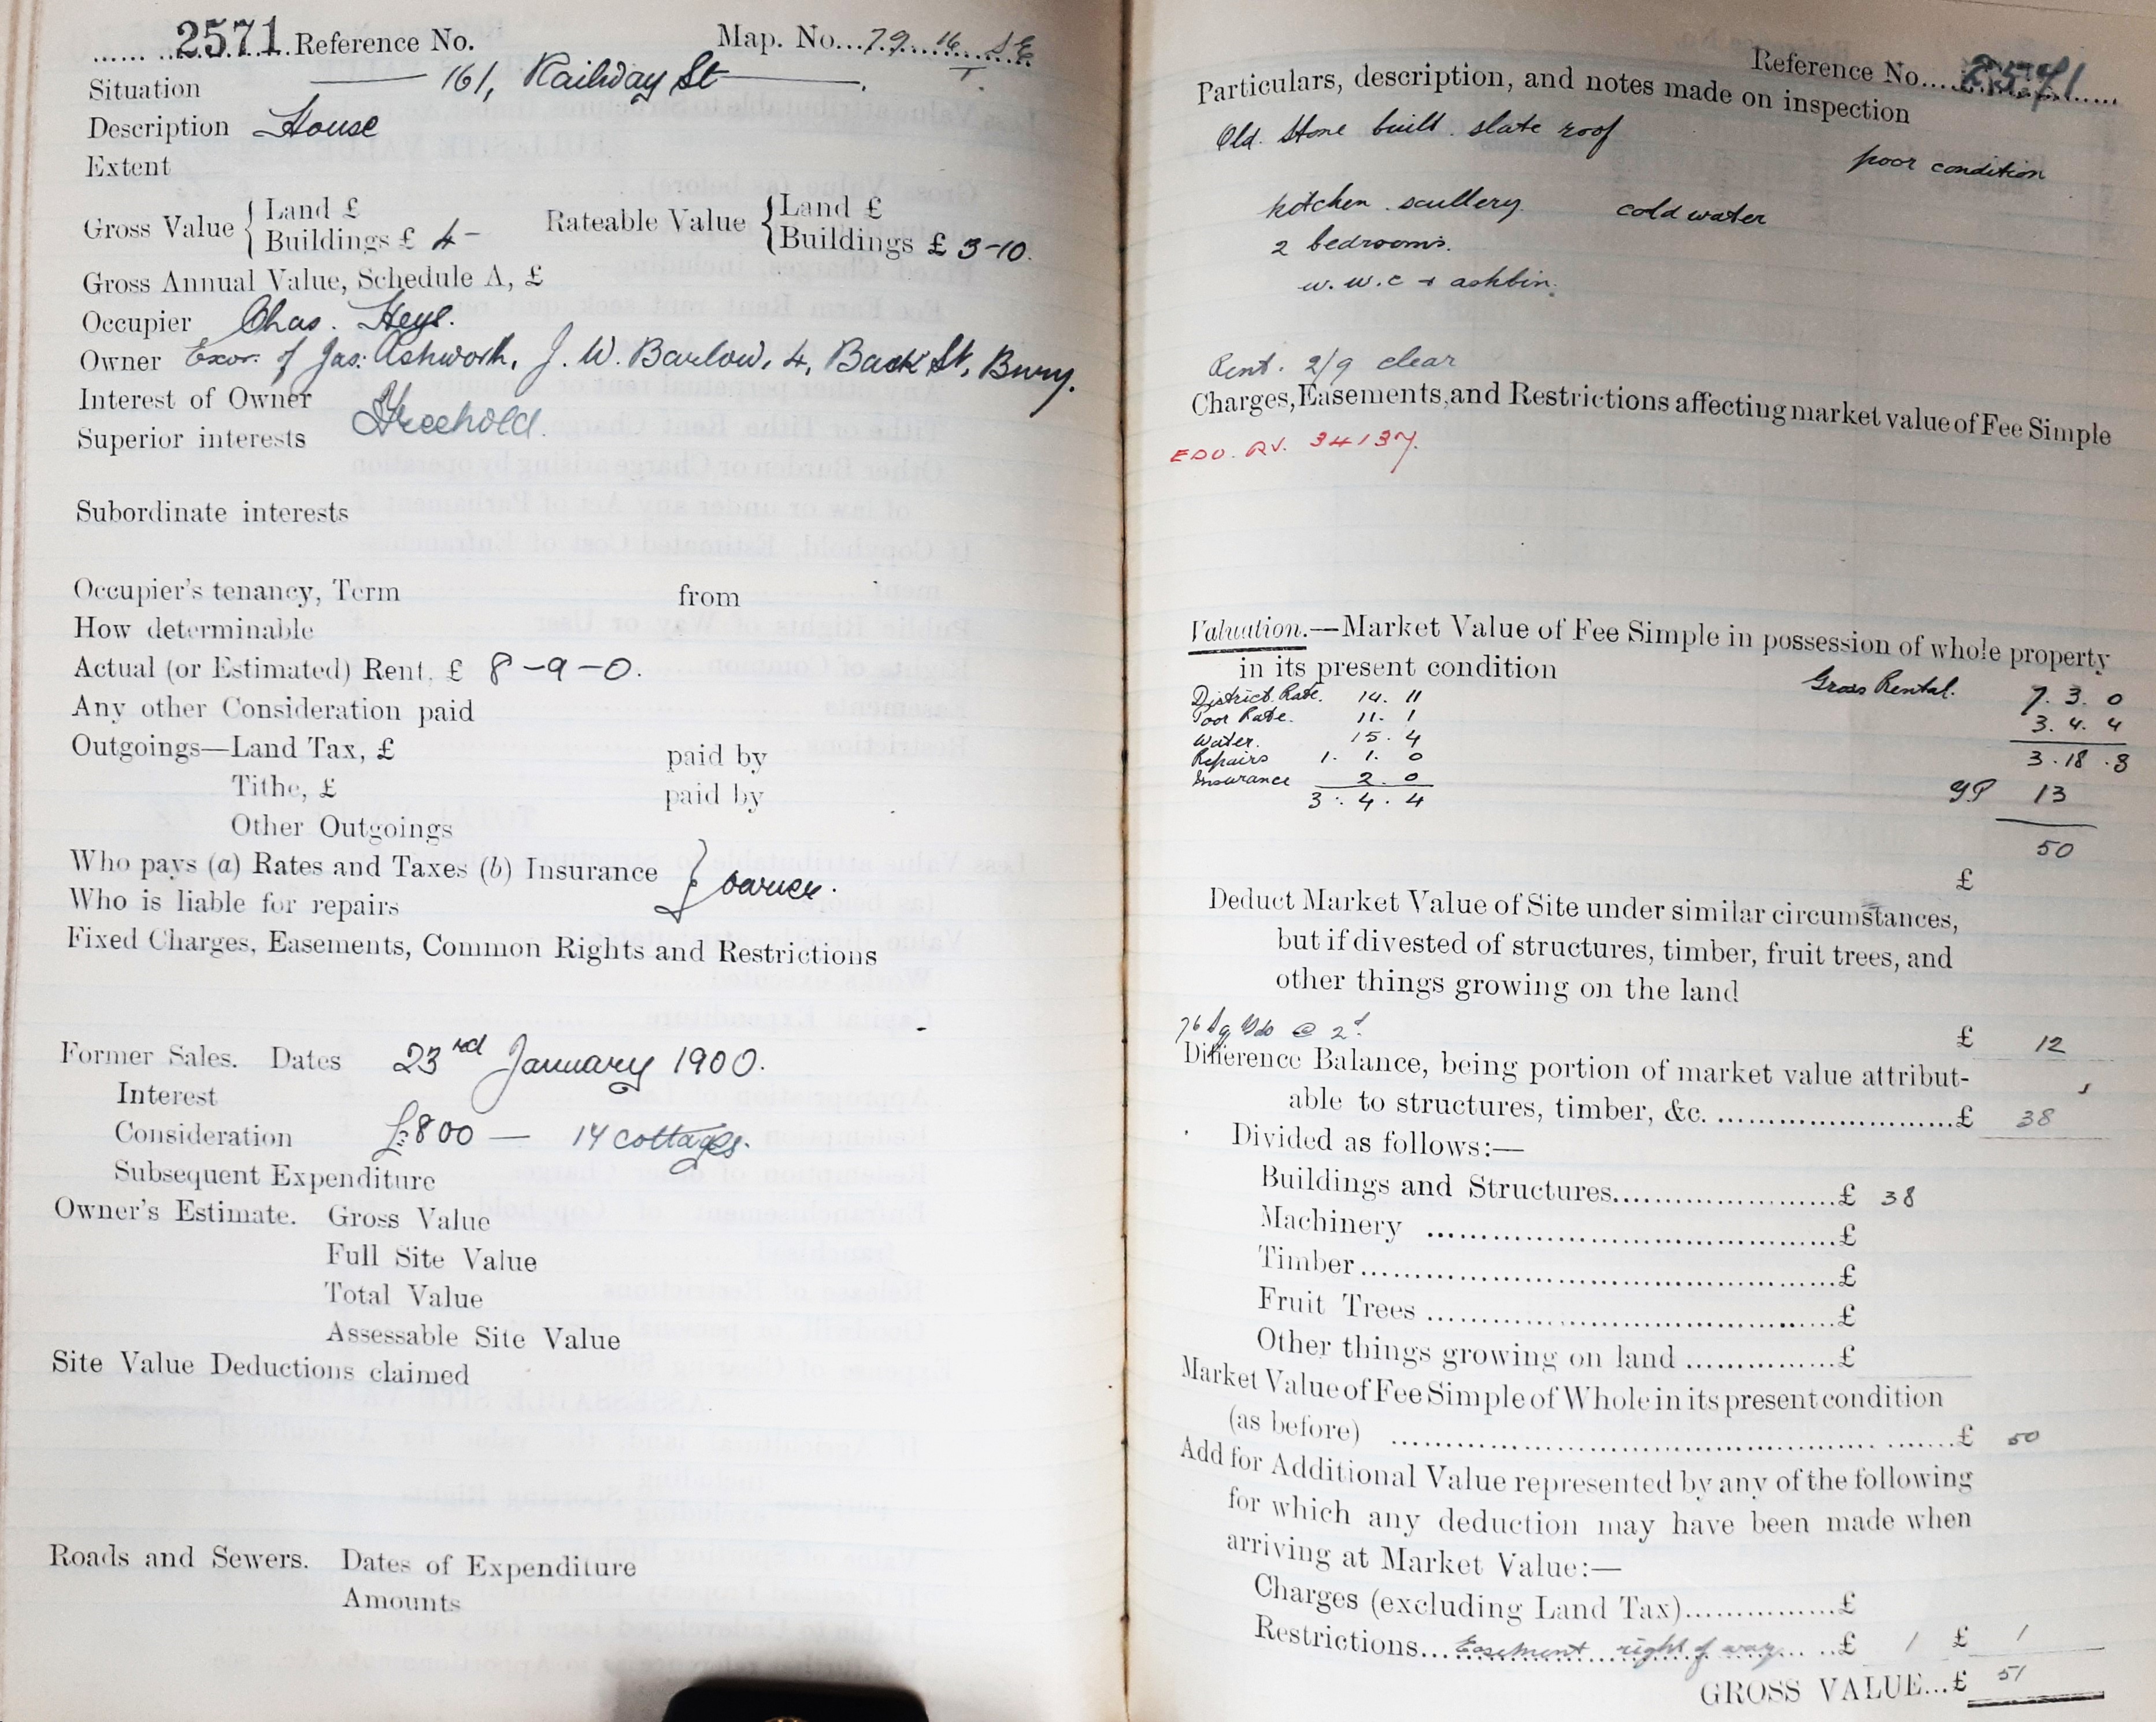 2571 Reference No. Map. No. 79. 16. SE
Situation 161, Railway St
Description House
Extent
Gross Value { Land £
Buildings £ 4-
Rateable Value { Land £
Buildings £ 3-10.
Gross Annual Value, Schedule A, £
Occupier Chas. Heys.
Owner Exor. of Jas: Ashworth, J. W. Barlow, 4, Back St, Bury.
Interest of Owner Freehold.
Superior interests
Subordinate interests
Occupier's tenancy, Term from
How determinable
Actual (or Estimated) Rent, £ 8-9-0.
Any other Consideration paid
Outgoings—Land Tax, £ paid by
Tithe, £ paid by
Other Outgoings
Who pays (a) Rates and Taxes (b) Insurance } owner.
Who is liable for repairs
Fixed Charges, Easements, Common Rights and Restrictions
Former Sales. Dates 23rd January 1900.
Interest
Consideration £800 — 14 cottages.
Subsequent Expenditure
Owner's Estimate. Gross Value
Full Site Value
Total Value
Assessable Site Value
Site Value Deductions claimed
Roads and Sewers. Dates of Expenditure
Amounts
Reference No. 2571
Particulars, description, and notes made on inspection
Old. Stone built. slate roof
poor condition
kitchen. scullery. cold water
2 bedrooms.
w.w.c + ashbin.
Rent. 2/9 clear
Charges, Easements, and Restrictions affecting market value of Fee Simple
EDO. RV. 34137.
Valuation.—Market Value of Fee Simple in possession of whole property
in its present condition
District Rate. 14. 11 Gross Rental. 7. 3. 0
Poor Rate. 11. 1 3. 4. 4
Water. 15. 4
Repairs 1. 1. 0 3. 18. 8
Insurance 2. 0 YP 13
3. 4. 4
50
£
Deduct Market Value of Site under similar circumstances,
but if divested of structures, timber, fruit trees, and
other things growing on the land
76 Sq Yds @ 2d. £ 12
Difference Balance, being portion of market value attribut-
able to structures, timber, &c. £ 38
Divided as follows:—
Buildings and Structures £ 38
Machinery £
Timber £
Fruit Trees £
Other things growing on land £
Market Value of Fee Simple of Whole in its present condition
(as before) £ 50
Add for Additional Value represented by any of the following
for which any deduction may have been made when
arriving at Market Value:—
Charges (excluding Land Tax) £
Restrictions Easement right of way £ 1 £ 1
GROSS VALUE...£ 51